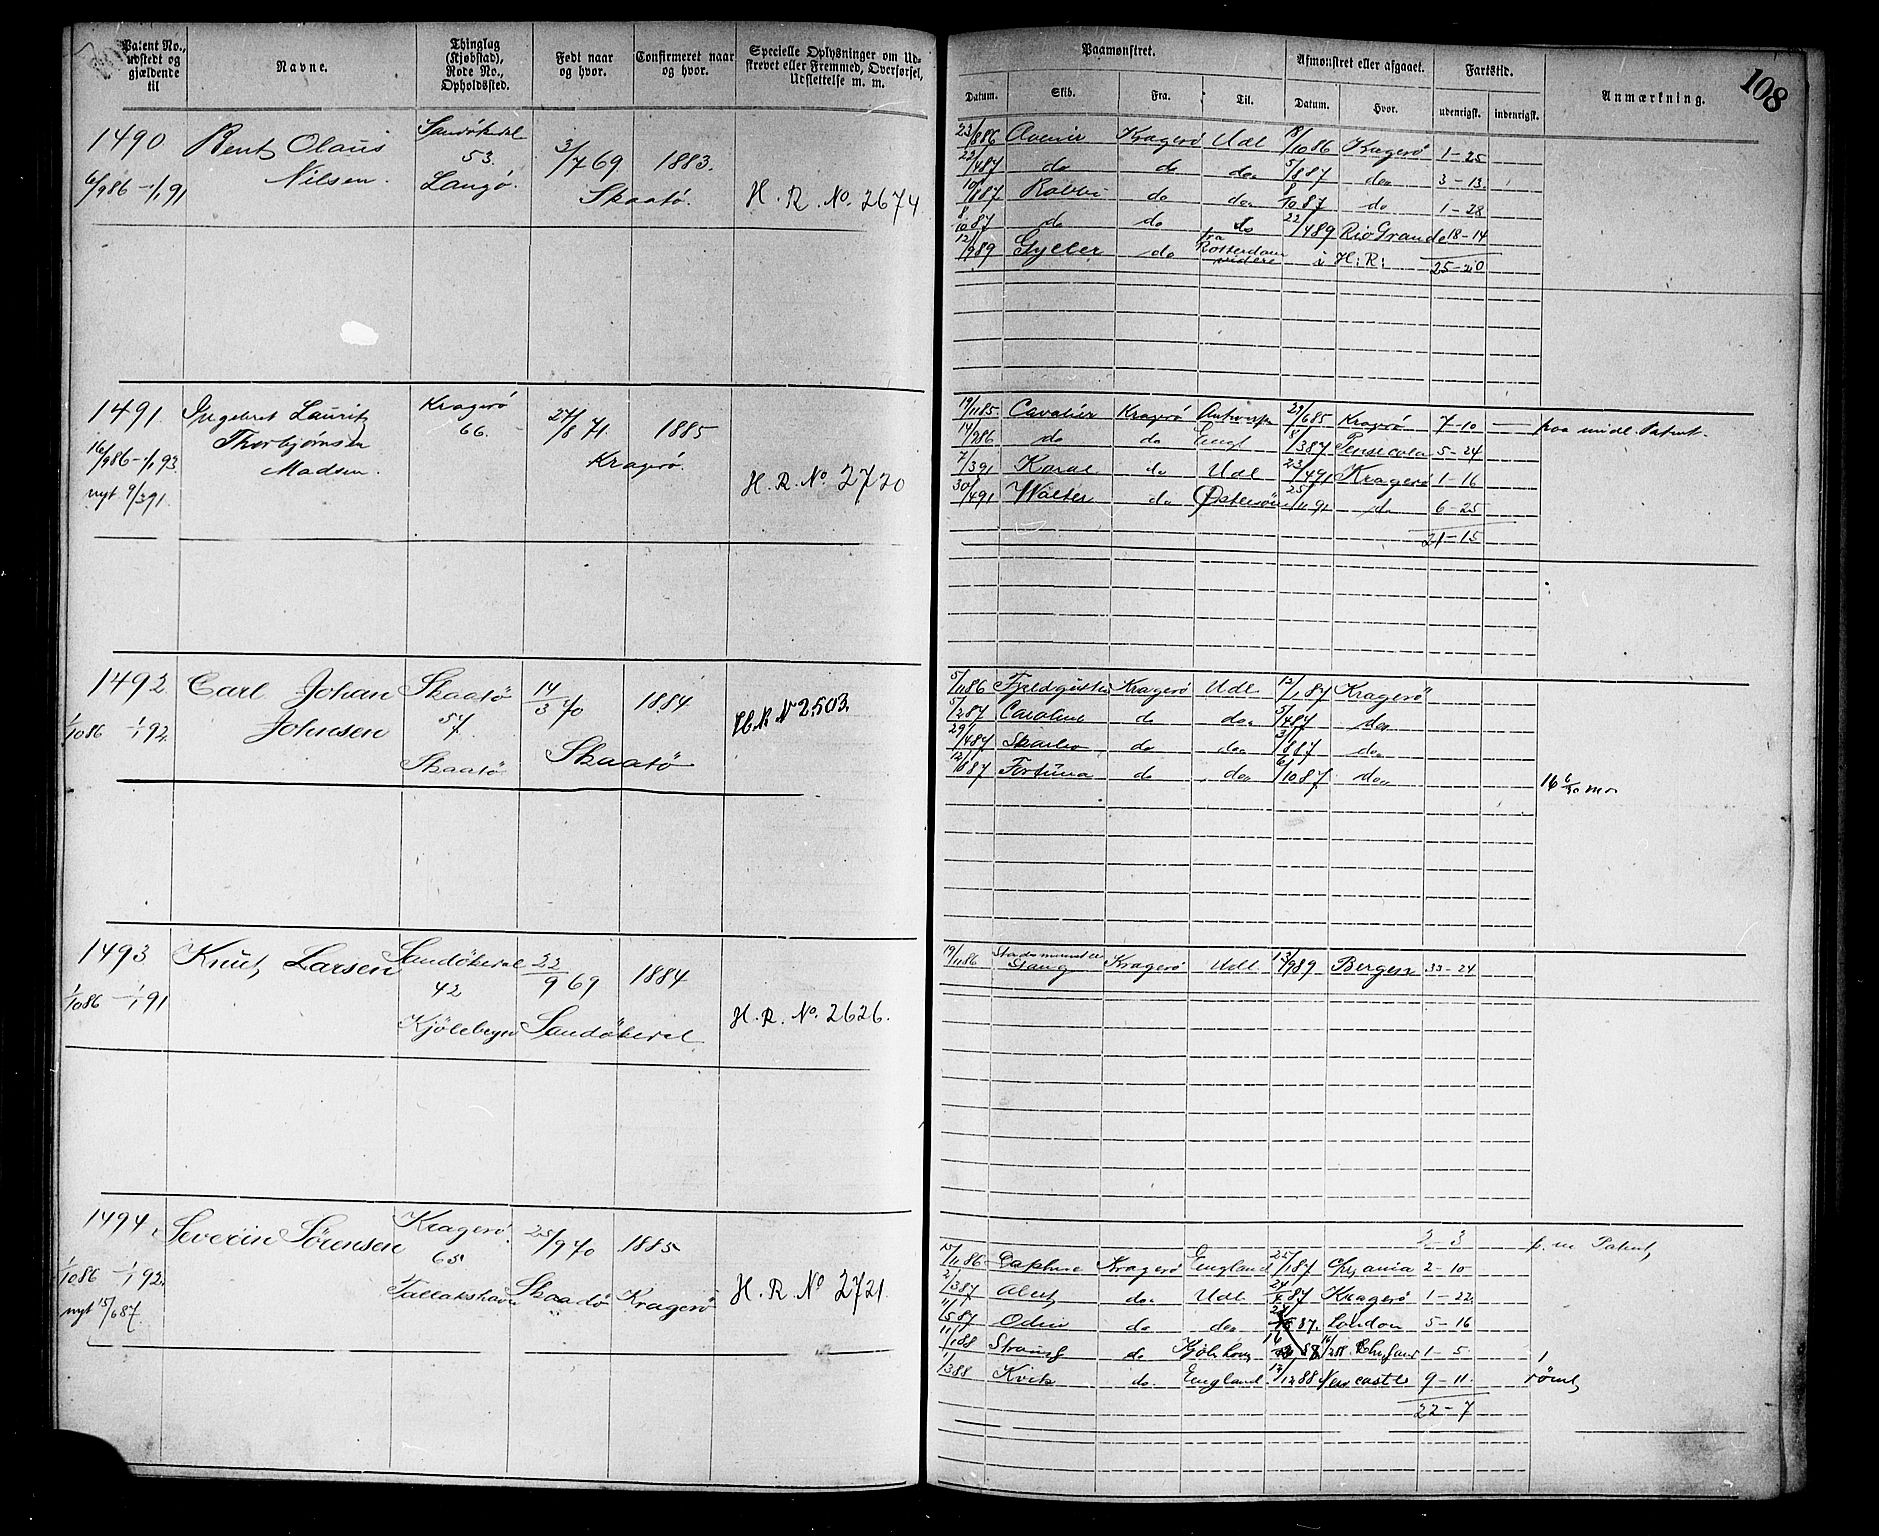 108
Patent No., udstedt og gjældende til
Navne.
Thinglag (Kjøbstad), Rode No., Opholdssted.
Født naar og hvor.
Confirmeret naar og hvor.
Specielle Oplysninger om Udskrevet eller Fremmed, Overførsel, Udslettelse m. m.
Paamønstret.
Afmønstret eller afgaaet.
Fartstid.
Anmærkning.
Datum. Skib. Fra. Til. Datum. Hvor. udenrigsk. indenrigsk.
1490 Bent Olaus Nilsen. Sandökedal 53. Langö. 3/7 69 Skaatö. 1883.
6/9 86 - 1/1 91
H. R. No. 2674
23/8 86 Avenir Kragerö Udl 8/10 86 Kragerö 1-25
22/4 87 do do do 5/8 87 do 3-13
10/8 87 do do 8/10 87 do 1-28
8/10 87 do do do 22/4 89 Rio Grande 18-14
12/9 89 Gyller do fra Rotterdam videre i H: R: 25-20
1491 Ingebret Lauritz Thorbjørnsen Madsen. Kragerö 66. 27/8 71. Kragerö. 1885
16/9 86 - 1/1 93.
nyt 9/3 91.
H. R. No. 2720
19/11 85. Cavalier Kragerö 29/6 85 Kragerö 7-10 — paa midl. Patent.
14/2 86 do do Engl 8/3 87 Pensecola 5-24
7/3 91 do Udl 23/4 91 Kragerö 1-16
30/4 91 Walter do Østersöen 25/11 91 do 6-25
21-15
1492 Carl Johan Johnsen Skaatö 57. Skaatö 14/3 70 Skaatö 1884
1/10 86 - 1/1 92.
H.R No 2503.
5/11 86 Kragerö Udl. 12/1 87 Kragerö
5/2 87 Caroline do do 5/4 87 do
29/4 87 do do 3/8 87 do
12/8 87 Fortuna do do 6/10 87 do
16 6/30 mo
1493 Knut Larsen Sandökedal 42 Kjölebrynd 22/9 69 Sandökedal 1884
1/10 86 - 1/1 91
H. R. No. 2626.
19/11 86 Stadsminister Stang Kragerö Udl 13/9 89 Bergen 33-24
1494. Severin Sörensen Kragerö. 65 Tallakshavn 25/9 70 Skaadö Kragerö 1885
1/10 86 - 1/1 92.
nyt 15/6 87.
H. R. No 2721.
2-3 p. m Patent
15/11 86 Daphne Kragerö England 25/1 87 Chr.ania 2-10
2/3 87 Alert do Udl. 24/4 87 Kragerö 1-22
11/5 87 Odin do do 87. London 5-16
11/1 88 do Kjöbhavn 16/2 88. 1-5
1/3 88 Kvik do England 12/12 88 Newcastle 9-11. rømt
22-7